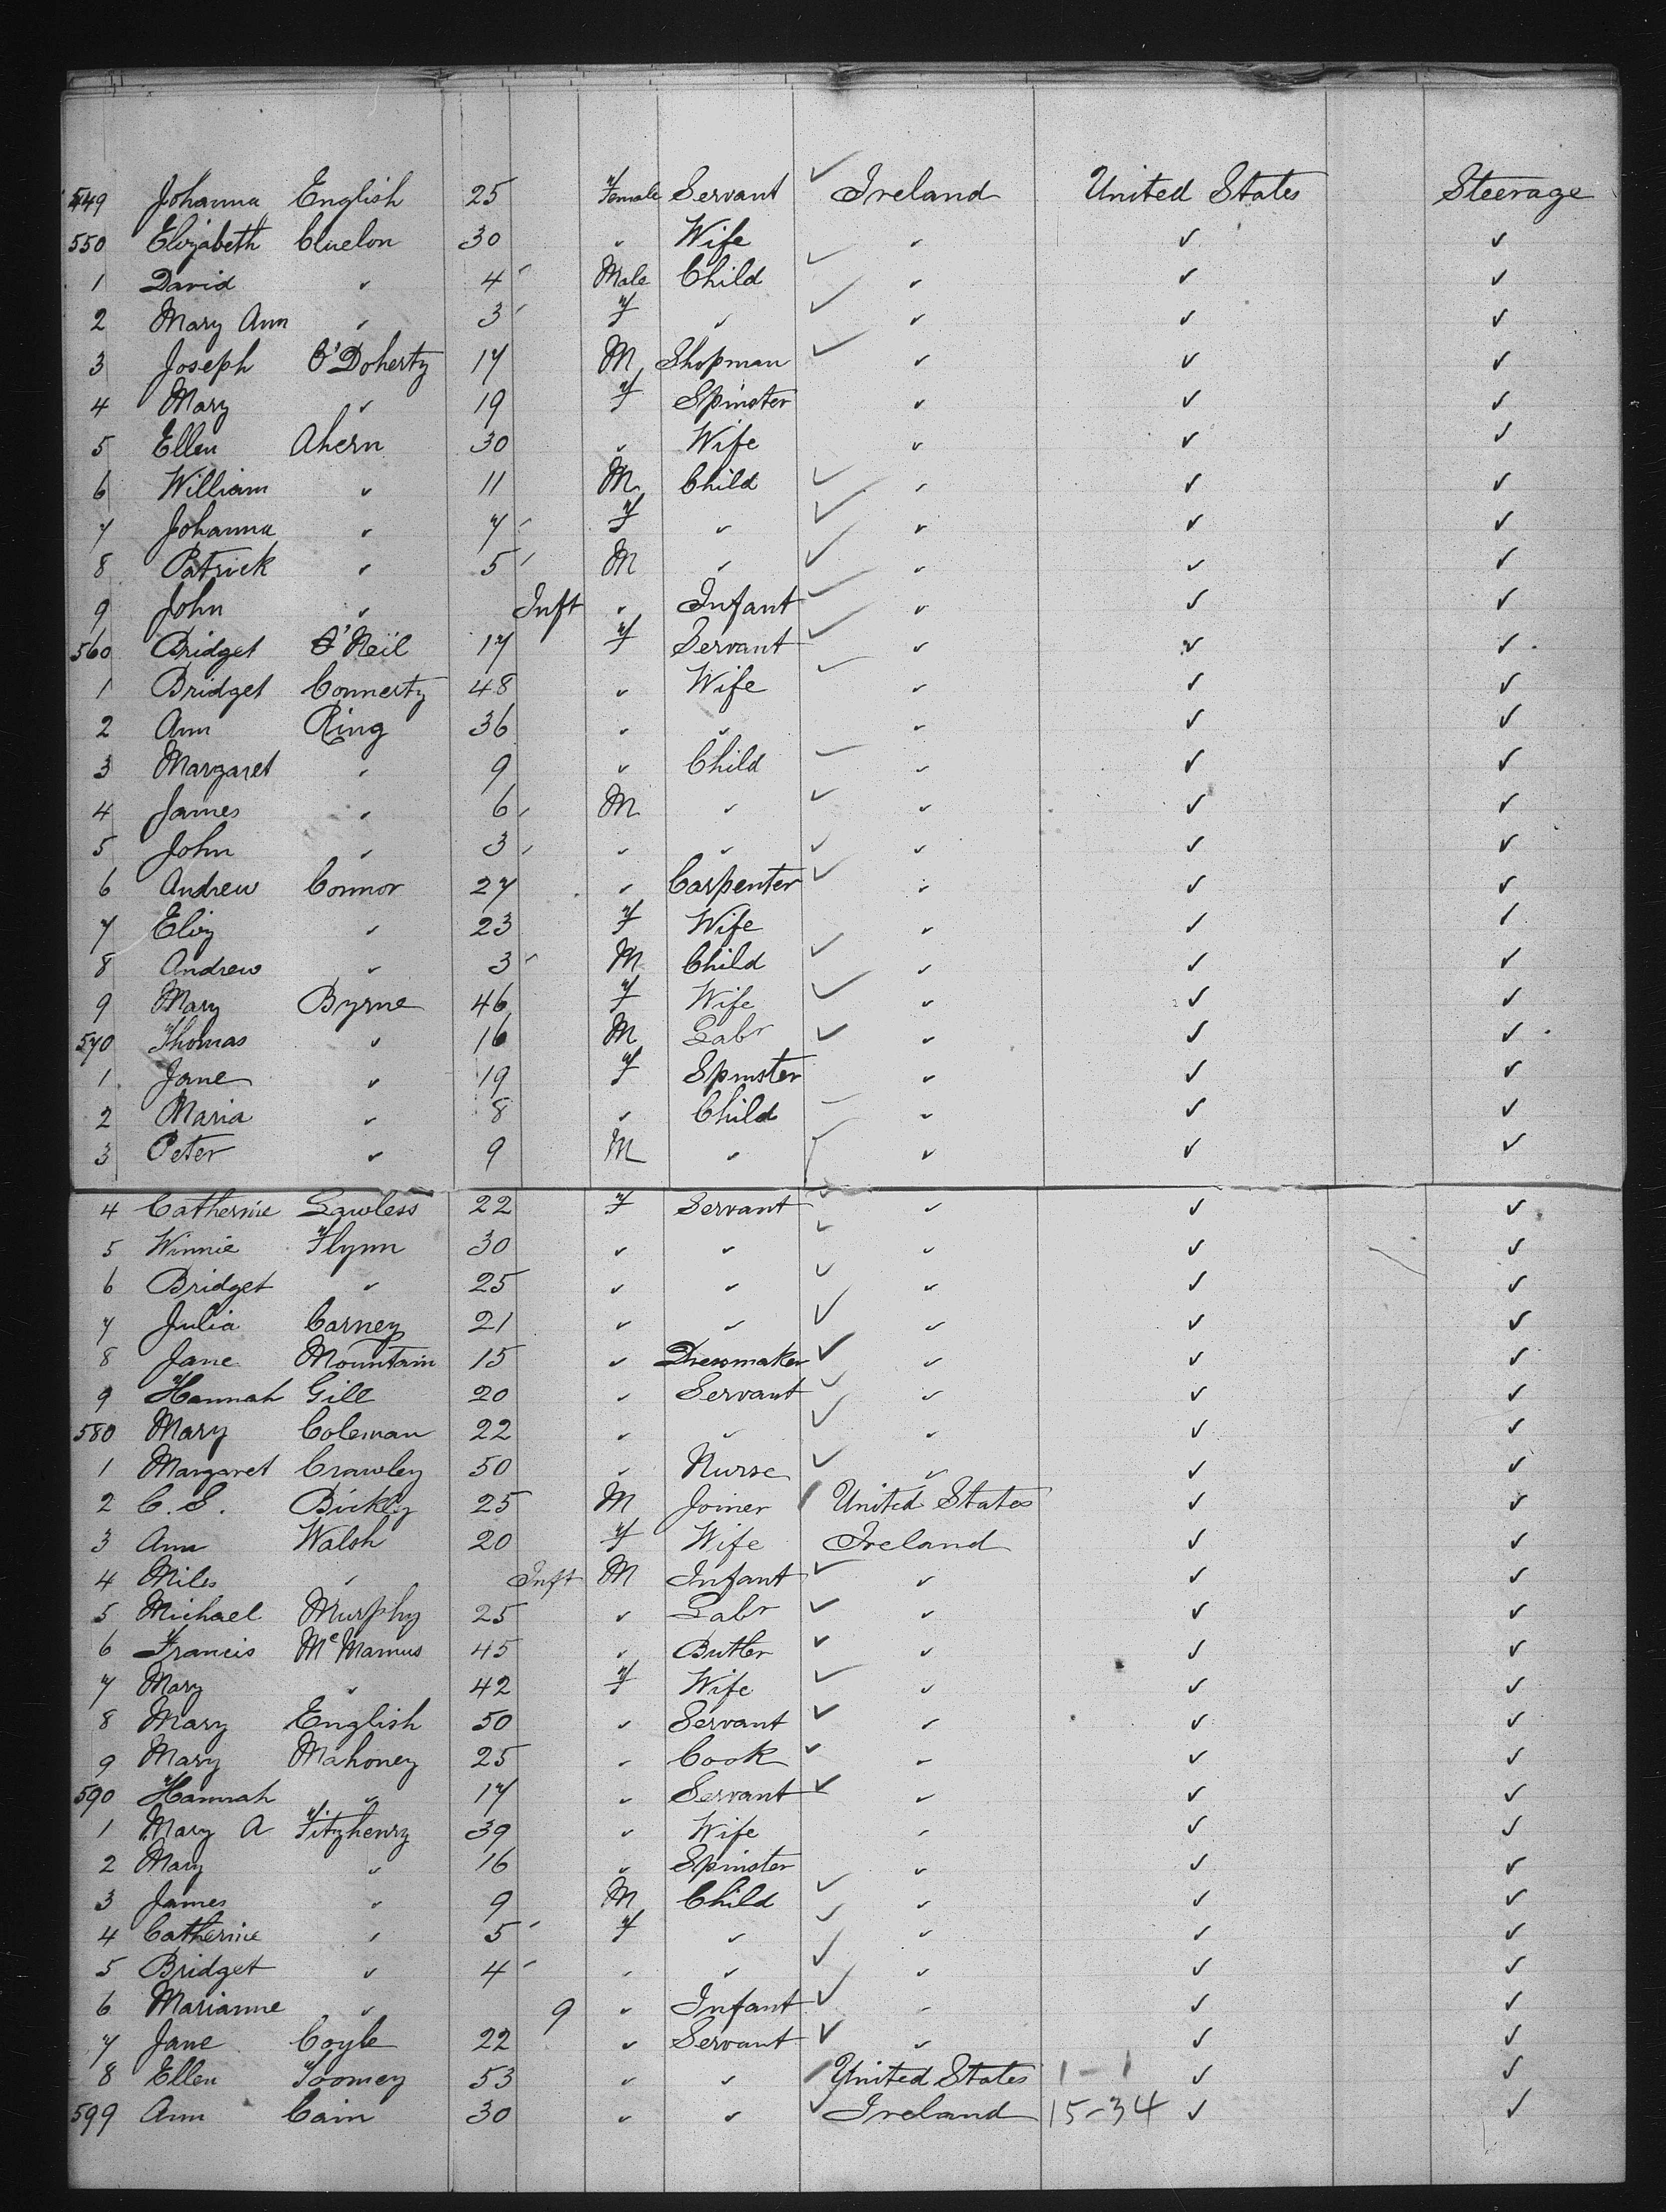 549 Johanna English 25 Female Servant ✓ Ireland United States Steerage
550 Elizabeth 30 " Wife " " "
1 David " 4 Male Child ✓ " " "
2 Mary Ann " 3 F " ✓ " " "
3 Joseph O'Doherty 17 M Shopman ✓ " " "
4 Mary " 19 F Spinster " " "
5 Ellen Ahern 30 " Wife " " "
6 William " 11 M Child ✓ " " "
7 Johanna " 7 F " ✓ " " "
8 Patrick " 5 M " ✓ " " "
9 John " Inft " Infant ✓ " " "
560 Bridget O'Neil 17 F Servant ✓ " " "
1 Bridget Connerty 48 " Wife ✓ " " "
2 Ann Ring 36 " " " " "
3 Margaret " 9 " Child ✓ " " "
4 James " 6 M " ✓ " " "
5 John " 3 " " " " "
6 Andrew Connor 27 " Carpenter ✓ " " "
7 Eliz 23 F Wife " " "
8 Andrew " 3 M Child ✓ " " "
9 Mary Byrne 46 F Wife ✓ " " "
570 Thomas " 16 M Labr ✓ " " "
1 Jane " 19 F Spinster " " "
2 Maria " 8 " Child ✓ " " "
3 Peter " 9 M " ✓ " " "
4 Catherine Lawless 22 F Servant ✓ " " "
5 Winnie Flynn 30 " " ✓ " " "
6 Bridget " 25 " " ✓ " " "
7 Julia Carney 21 " " ✓ " " "
8 Jane Mountain 15 " Dressmaker ✓ " " "
9 Hannah Gill 20 " Servant ✓ " " "
580 Mary Coleman 22 " " ✓ " " "
1 Margaret Crawley 50 " Nurse ✓ " " "
2 C. S. 25 M Joiner United States " "
3 Ann Walsh 20 F Wife Ireland " "
4 Miles " Inft M Infant ✓ " " "
5 Michael Murphy 25 " Labr ✓ " " "
6 Francis McManus 45 " Butler ✓ " " "
7 Mary " 42 F Wife ✓ " " "
8 Mary English 50 " Servant ✓ " " "
9 Mary Mahoney 25 " Cook ✓ " " "
590 Hannah " 17 " Servant ✓ " " "
1 Mary A Fitzhenry 39 " Wife " " "
2 Mary " 16 " Spinster " " "
3 James " 9 M Child ✓ " " "
4 Catherine " 5 F " ✓ " " "
5 Bridget " 4 " " ✓ " " "
6 Marianne " 9 " Infant ✓ " " "
7 Jane Coyle 22 " Servant ✓ " " "
8 Ellen Toomey 53 " " United States 1-1 " "
599 Ann Cain 30 " " ✓ Ireland 15-34 " "